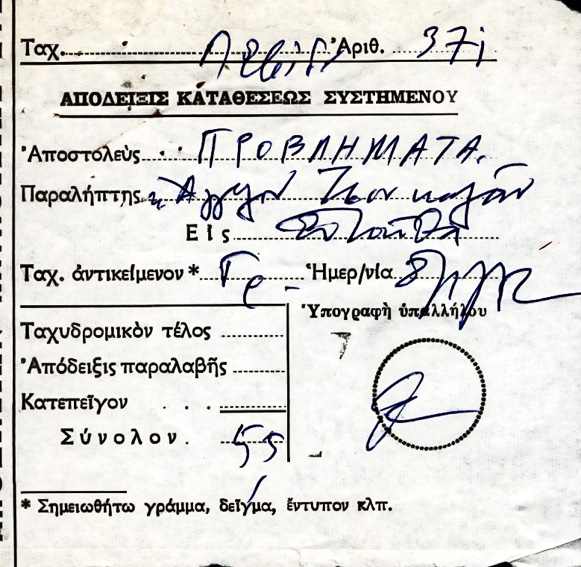 Ταχ. Ἀριθ. 371
ΑΠΟΔΕΙΞΙΣ ΚΑΤΑΘΕΣΕΩΣ ΣΥΣΤΗΜΕΝΟΥ
Ἀποστολεὺς ΠΡΟΒΛΗΜΑΤΑ.
Παραλήπτης
Εἰς
Ταχ. ἀντικείμενον * Γρ. Ἡμερ/νία
Ὑπογραφὴ ὑπαλλήλου
Ταχυδρομικὸν τέλος
Ἀπόδειξις παραλαβῆς
Κατεπεῖγον
Σύνολον. 55
* Σημειωθήτω γράμμα, δεῖγμα, ἔντυπον κλπ.